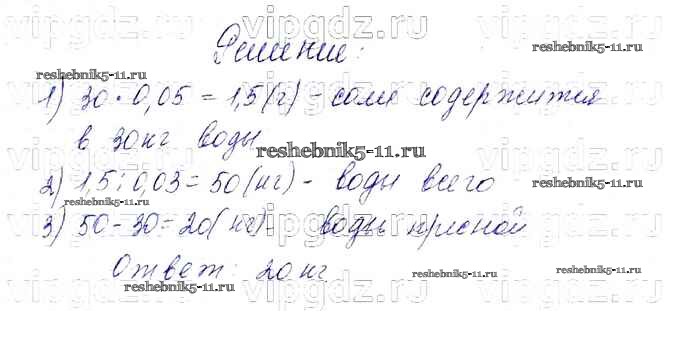 vipgdz.ru vipgdz.ru vipgdz.ru
Решение:
reshebnik5-11.ru
reshebnik5-11.ru
1) 30 · 0,05 = 1,5 (г) - соли содержится
в 30 кг воды
reshebnik5-11.ru
vipgdz.ru vipgdz.ru vipgdz.ru
2) 1,5 : 0,03 = 50 (кг) - воды всего
reshebnik5-11.ru
reshebnik5-11.ru
3) 50 - 30 = 20 (кг) - воды пресной
reshebnik5-11.ru
Ответ: 20 кг.
reshebnik5-11.ru
reshebnik5-11.ru
vipgdz.ru vipgdz.ru vipgdz.ru